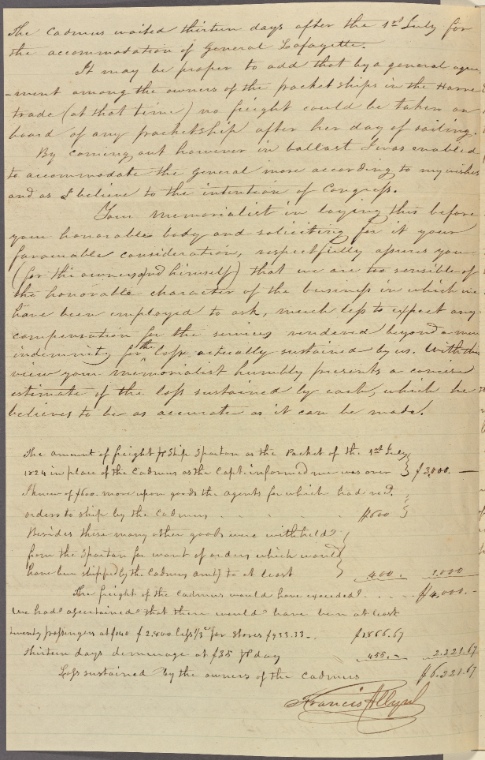 The Cadmus waited thirteen days after the 1st July for
the accommodation of General Lafayette.
It may be proper to add that by a general agree
-ment among the owners of the packet ships in the Havre
trade (at that time) no freight could be taken on
board of any packetship after her day of sailing.
By coming out however in ballast I was enabled
to accommodate the General more according to my wishes
and as I believe to the intention of Congress.
Your memorialist in laying this before
your honorable body and soliciting for it your
favourable consideration, respectfully assures you
(for the owners and himself) that we are too sensible of
the honorable character of the business in which we
have been employed to ask, much less to expect any
compensation for the services rendered beyond a mere
indemnity for the loss actually sustained by us. With this
view your memorialist humbly presents a concise
estimate of the loss sustained by each, which he
believes to be as accurate as it can be made.
The amount of freight pr Ship Spartan as the Packet of the 1st July
1824 in place of the Cadmus as the Capt. informed me was over $3,000. —
I knew of $600 more upon goods the agents for which had recd.
orders to ship by the Cadmus $600
Besides there many other goods were withheld
from the Spartan for want of orders which would
have been shipped by the Cadmus amtg to at least 400.- 1.000
The freight of the Cadmus would have exceeded $4,000.-
We had ascertained that there would have been at least
twenty passengers at $140 $2,800 less 1/3d for Stores $933.33 $1866.67
thirteen days demurrage at $35 pr day 455.- 2.321.67
Loss sustained by the owners of the Cadmus $6.321.67
Francis Allyn